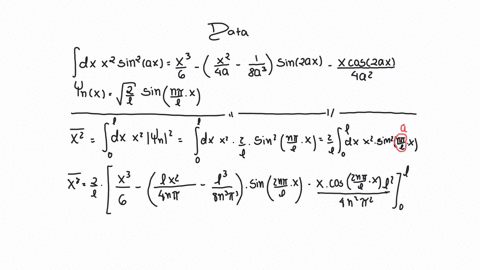 Data
∫dx x² sin²(ax) = x³/6 - (x²/4a - 1/8a³) Sin(2ax) - x cos(2ax)/4a²
Ψn(x) = √(2/l) Sin(nπ/l . x)
" "
a
x̄² = ∫₀ˡ dx x² |Ψn|² = ∫₀ˡ dx x² . 2/l . Sin²(nπ/l . x) = 2/l ∫₀ˡ dx x² . sin²(nπ/l . x)
x̄² = 2/l . [x³/6 - (l x²/4nπ - l³/8n³π³) . sin(2nπ/l . x) - x . cos(2nπ/l . x) l²/4n²π²]₀ˡ